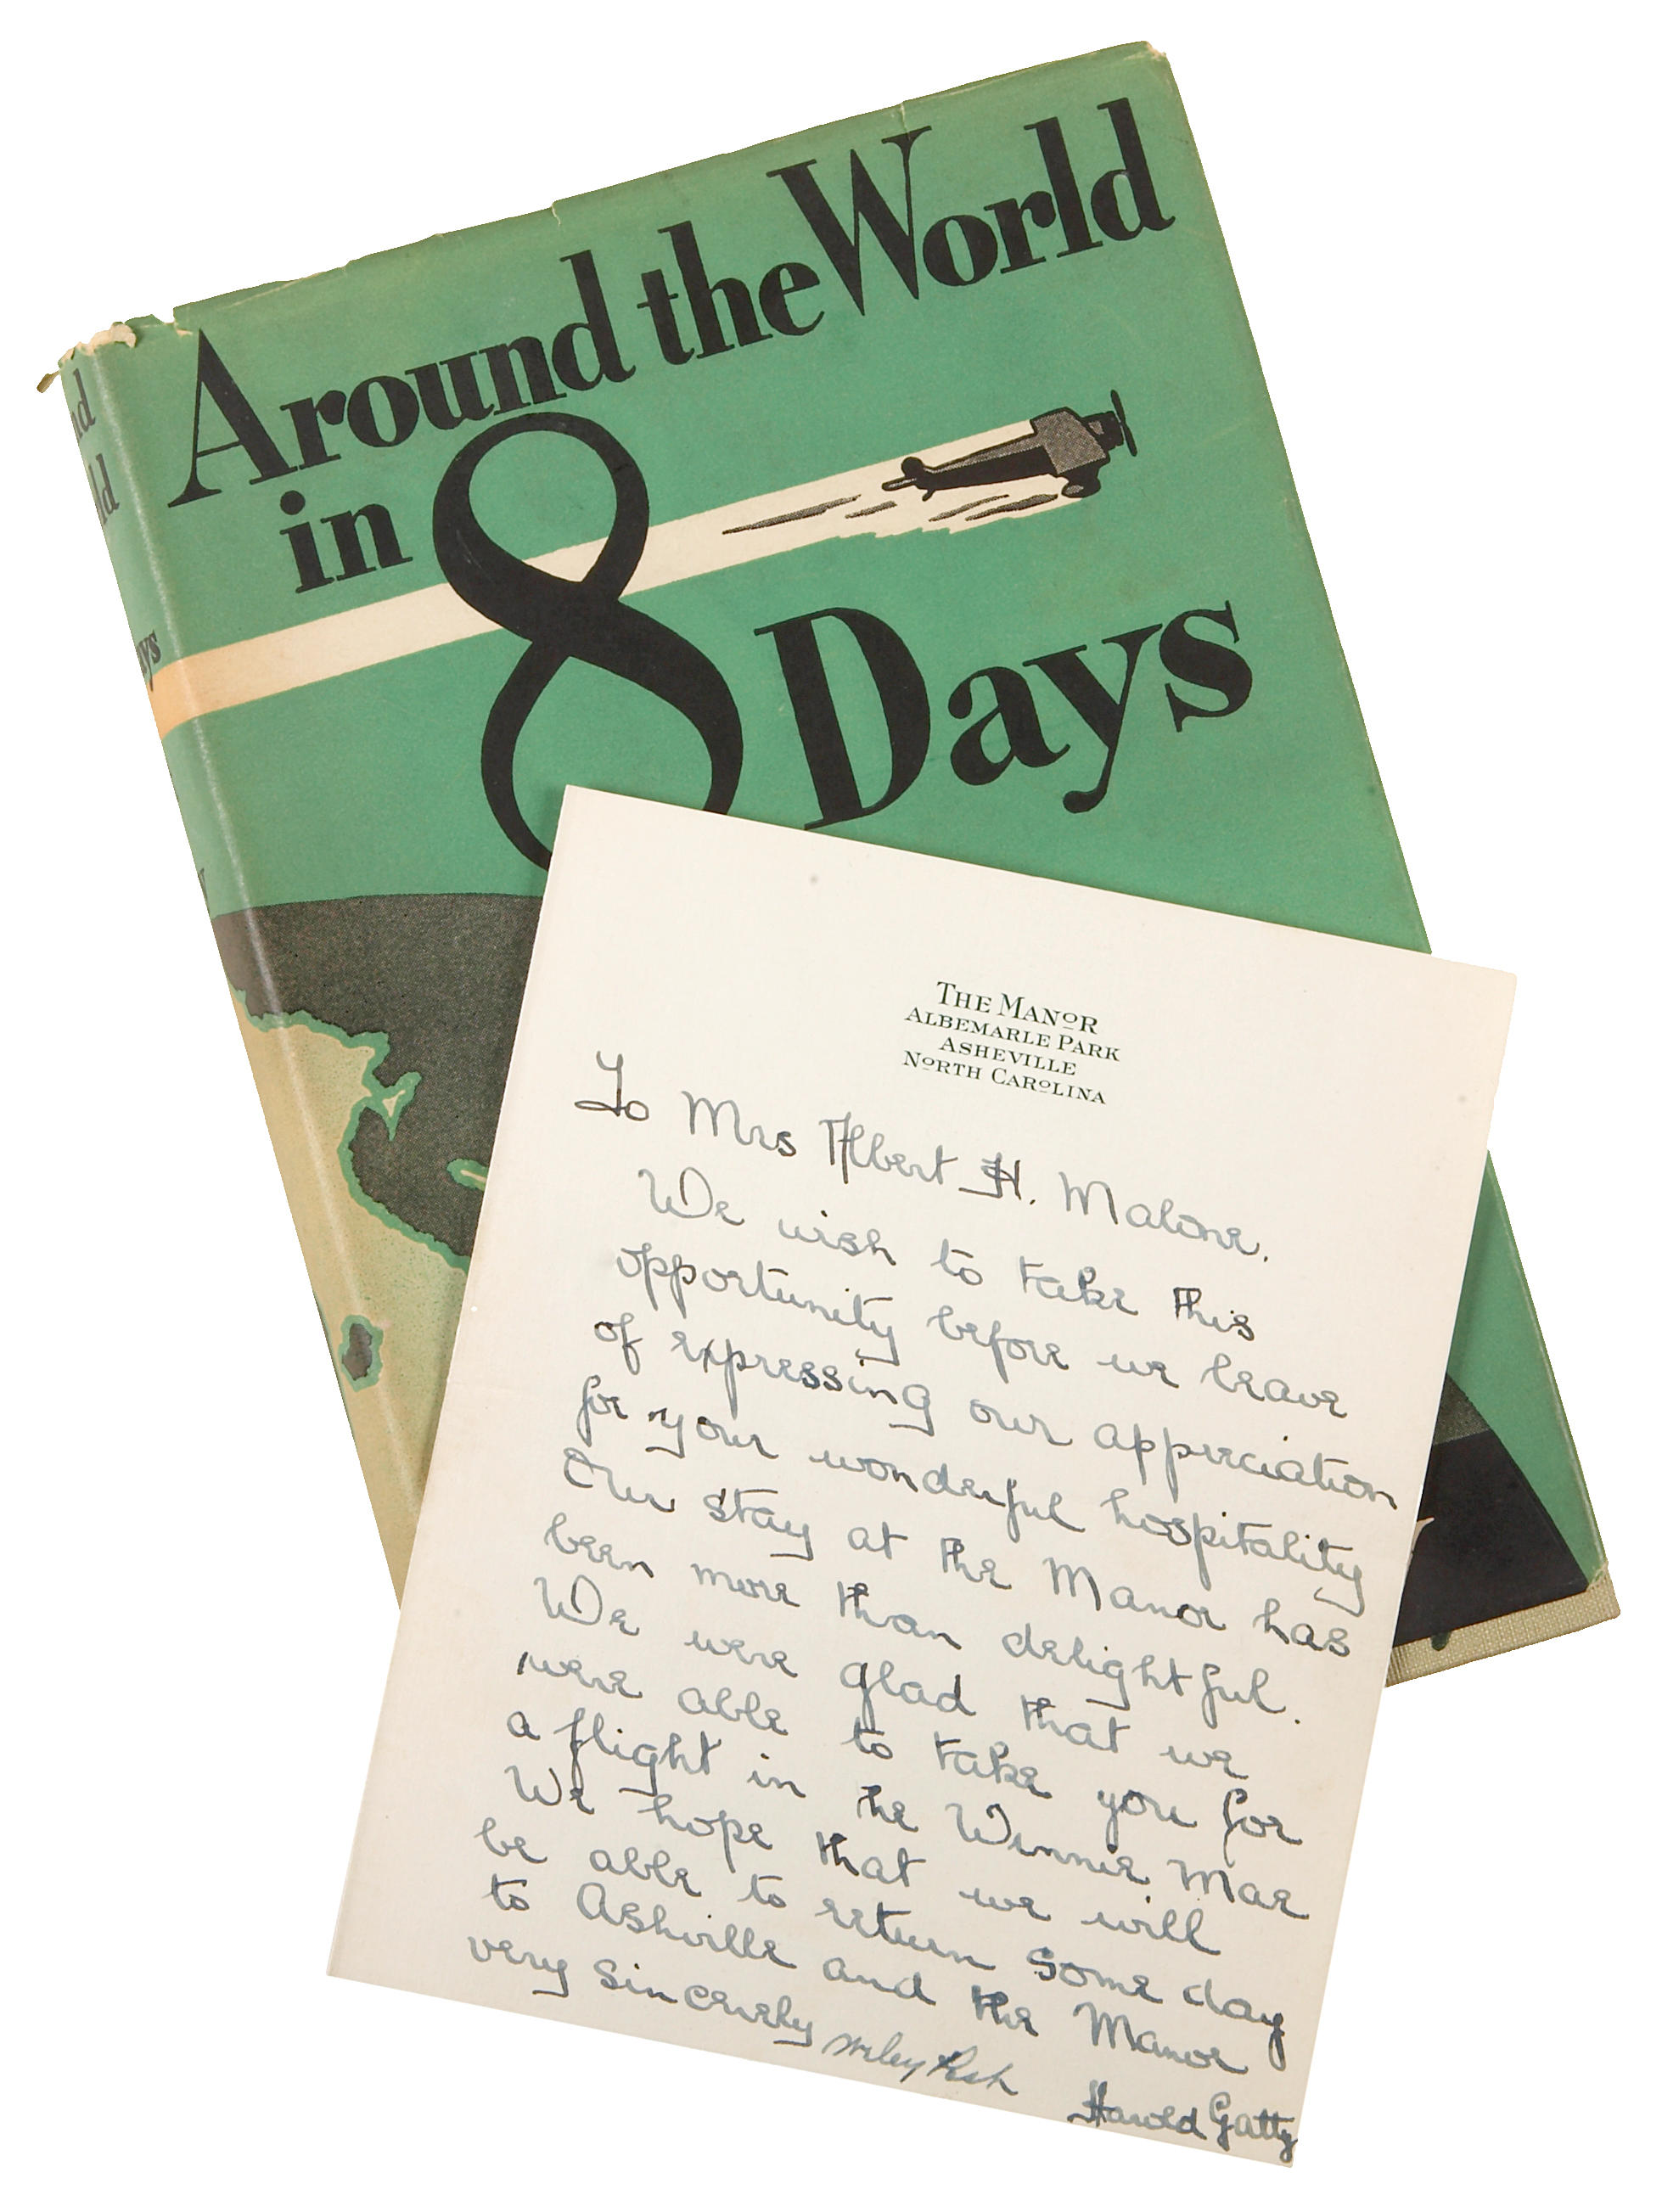 Around the World
in 8 Days
nd
ld
ays
THE MANOR
ALBEMARLE PARK
ASHEVILLE
NORTH CAROLINA
To Mrs Albert H. Malone.
We wish to take this
opportunity before we leave
of expressing our appreciation
for your wonderful hospitality
Our stay at the Manor has
been more than delightful.
We were glad that we
were able to take you for
a flight in the Winnie Mae
We hope that we will
be able to return some day
to Ashville and the Manor
very sincerely Wiley Post
Harold Gatty